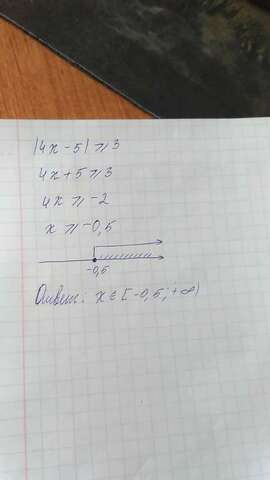 |4x-5|⩾3
4x+5⩾3
4x⩾-2
x⩾-0,5
-0,5
Ответ: x∈[-0,5;+∞)